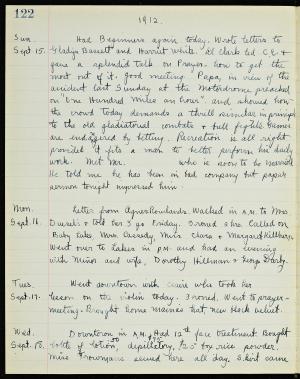 122
1912.
Sun. Had Beginners again today. Wrote letters to
Sept 15. Gladys Bassett and Harriet White. Al Clark led C.E. +
gave a splendid talk on Prayer. how to get the
most out of it. Good meeting. Papa, in view of the
accident last Sunday at the Motordrome preached
on "One Hundred Miles an hour". and showed how
the crowd today demands a thrill similar in principle
to the old gladiatorial combats + bull fights. Games
are endangered by betting. Recreation is all right
provided it fits a man to better perform his daily
work. Met Mr. who is soon to be married
He told me he has been in bad company but papa's
sermon tonight impressed him.
Mon. Letter from Agnes Rowlands. Walked in A.M. to Mrs
Sept. 16. + told her I go Friday. Ironed a bit. Called on
Baby Lake, Mrs. Cassedy, Miss Clara + Margaret Killborn
Went over to Lakes in P.M. and had an evening
with Minor and wife, Dorothy Hillman +
Tues. Went downtown with Carrie who took her
Sept. 17. lesson on the violin today. Ironed. Went to prayer-
meeting. Brought home mamma's hat new black velvet.
Wed. Downtown in A.M. + Had 12th face treatment. Bought
Sept. 18. bottle of lotion 50, depilatory, 25 for rice powder.
Miss sewed here all day. Skirt came